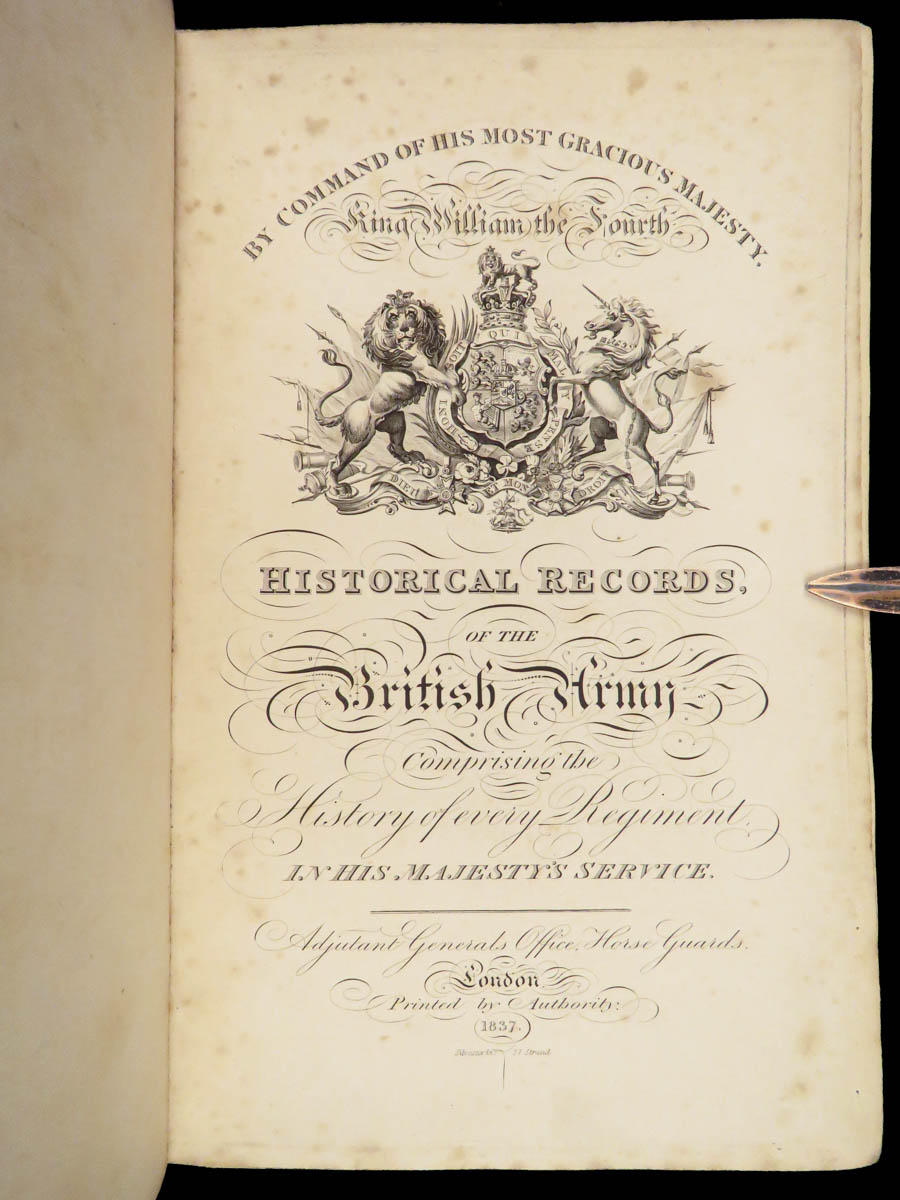 BY COMMAND OF HIS MOST GRACIOUS MAJESTY.
King William the Fourth
HONI SOIT QUI MAL Y PENSE
DIEU ET MON DROIT
HISTORICAL RECORDS,
OF THE
British Army
Comprising the
History of every Regiment
IN HIS MAJESTY'S SERVICE.
Adjutant Generals Office, Horse Guards.
London
Printed by Authority:
1837.
Strand